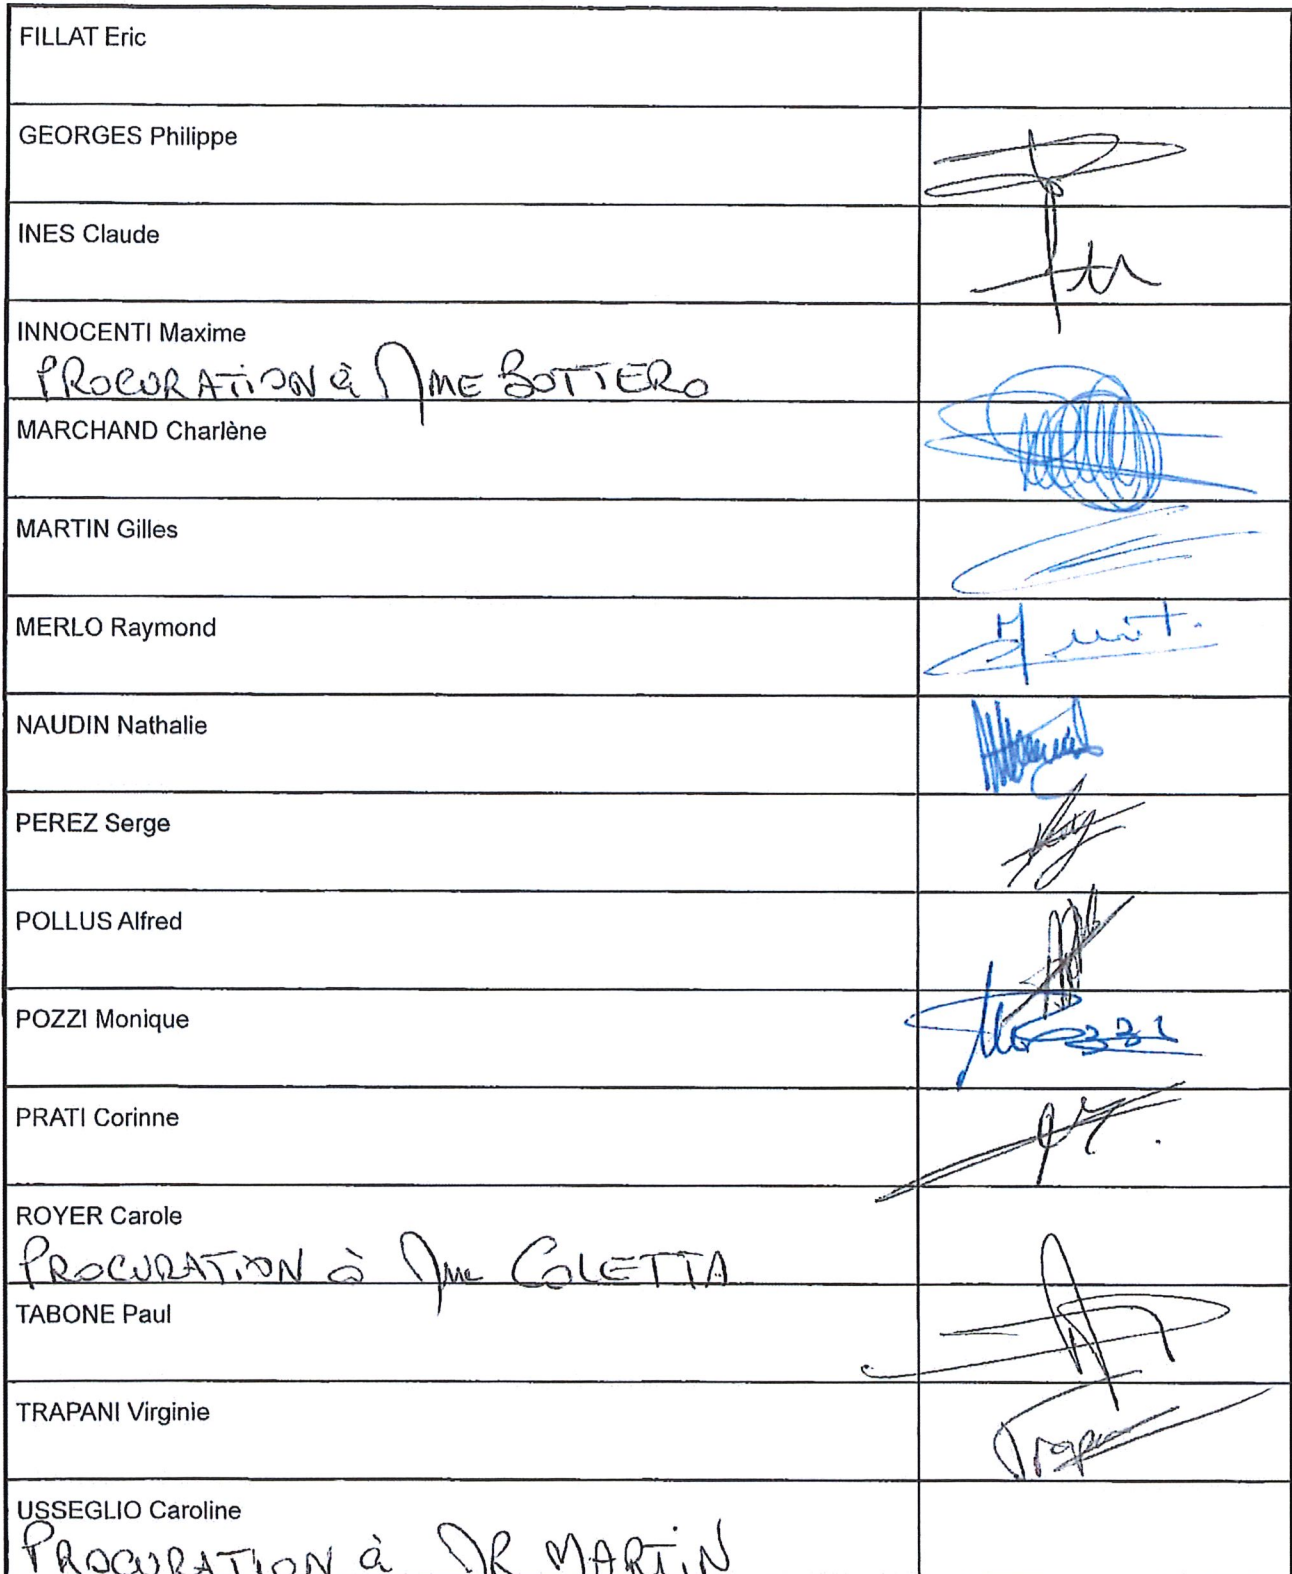 FILLAT Eric
GEORGES Philippe
INES Claude
INNOCENTI Maxime
PROCURATION à Mme BOTTERO
MARCHAND Charlène
MARTIN Gilles
MERLO Raymond
NAUDIN Nathalie
PEREZ Serge
POLLUS Alfred
POZZI Monique
PRATI Corinne
ROYER Carole
PROCURATION à Mme COLETTA
TABONE Paul
TRAPANI Virginie
USSEGLIO Caroline
PROCURATION à MR MARTIN